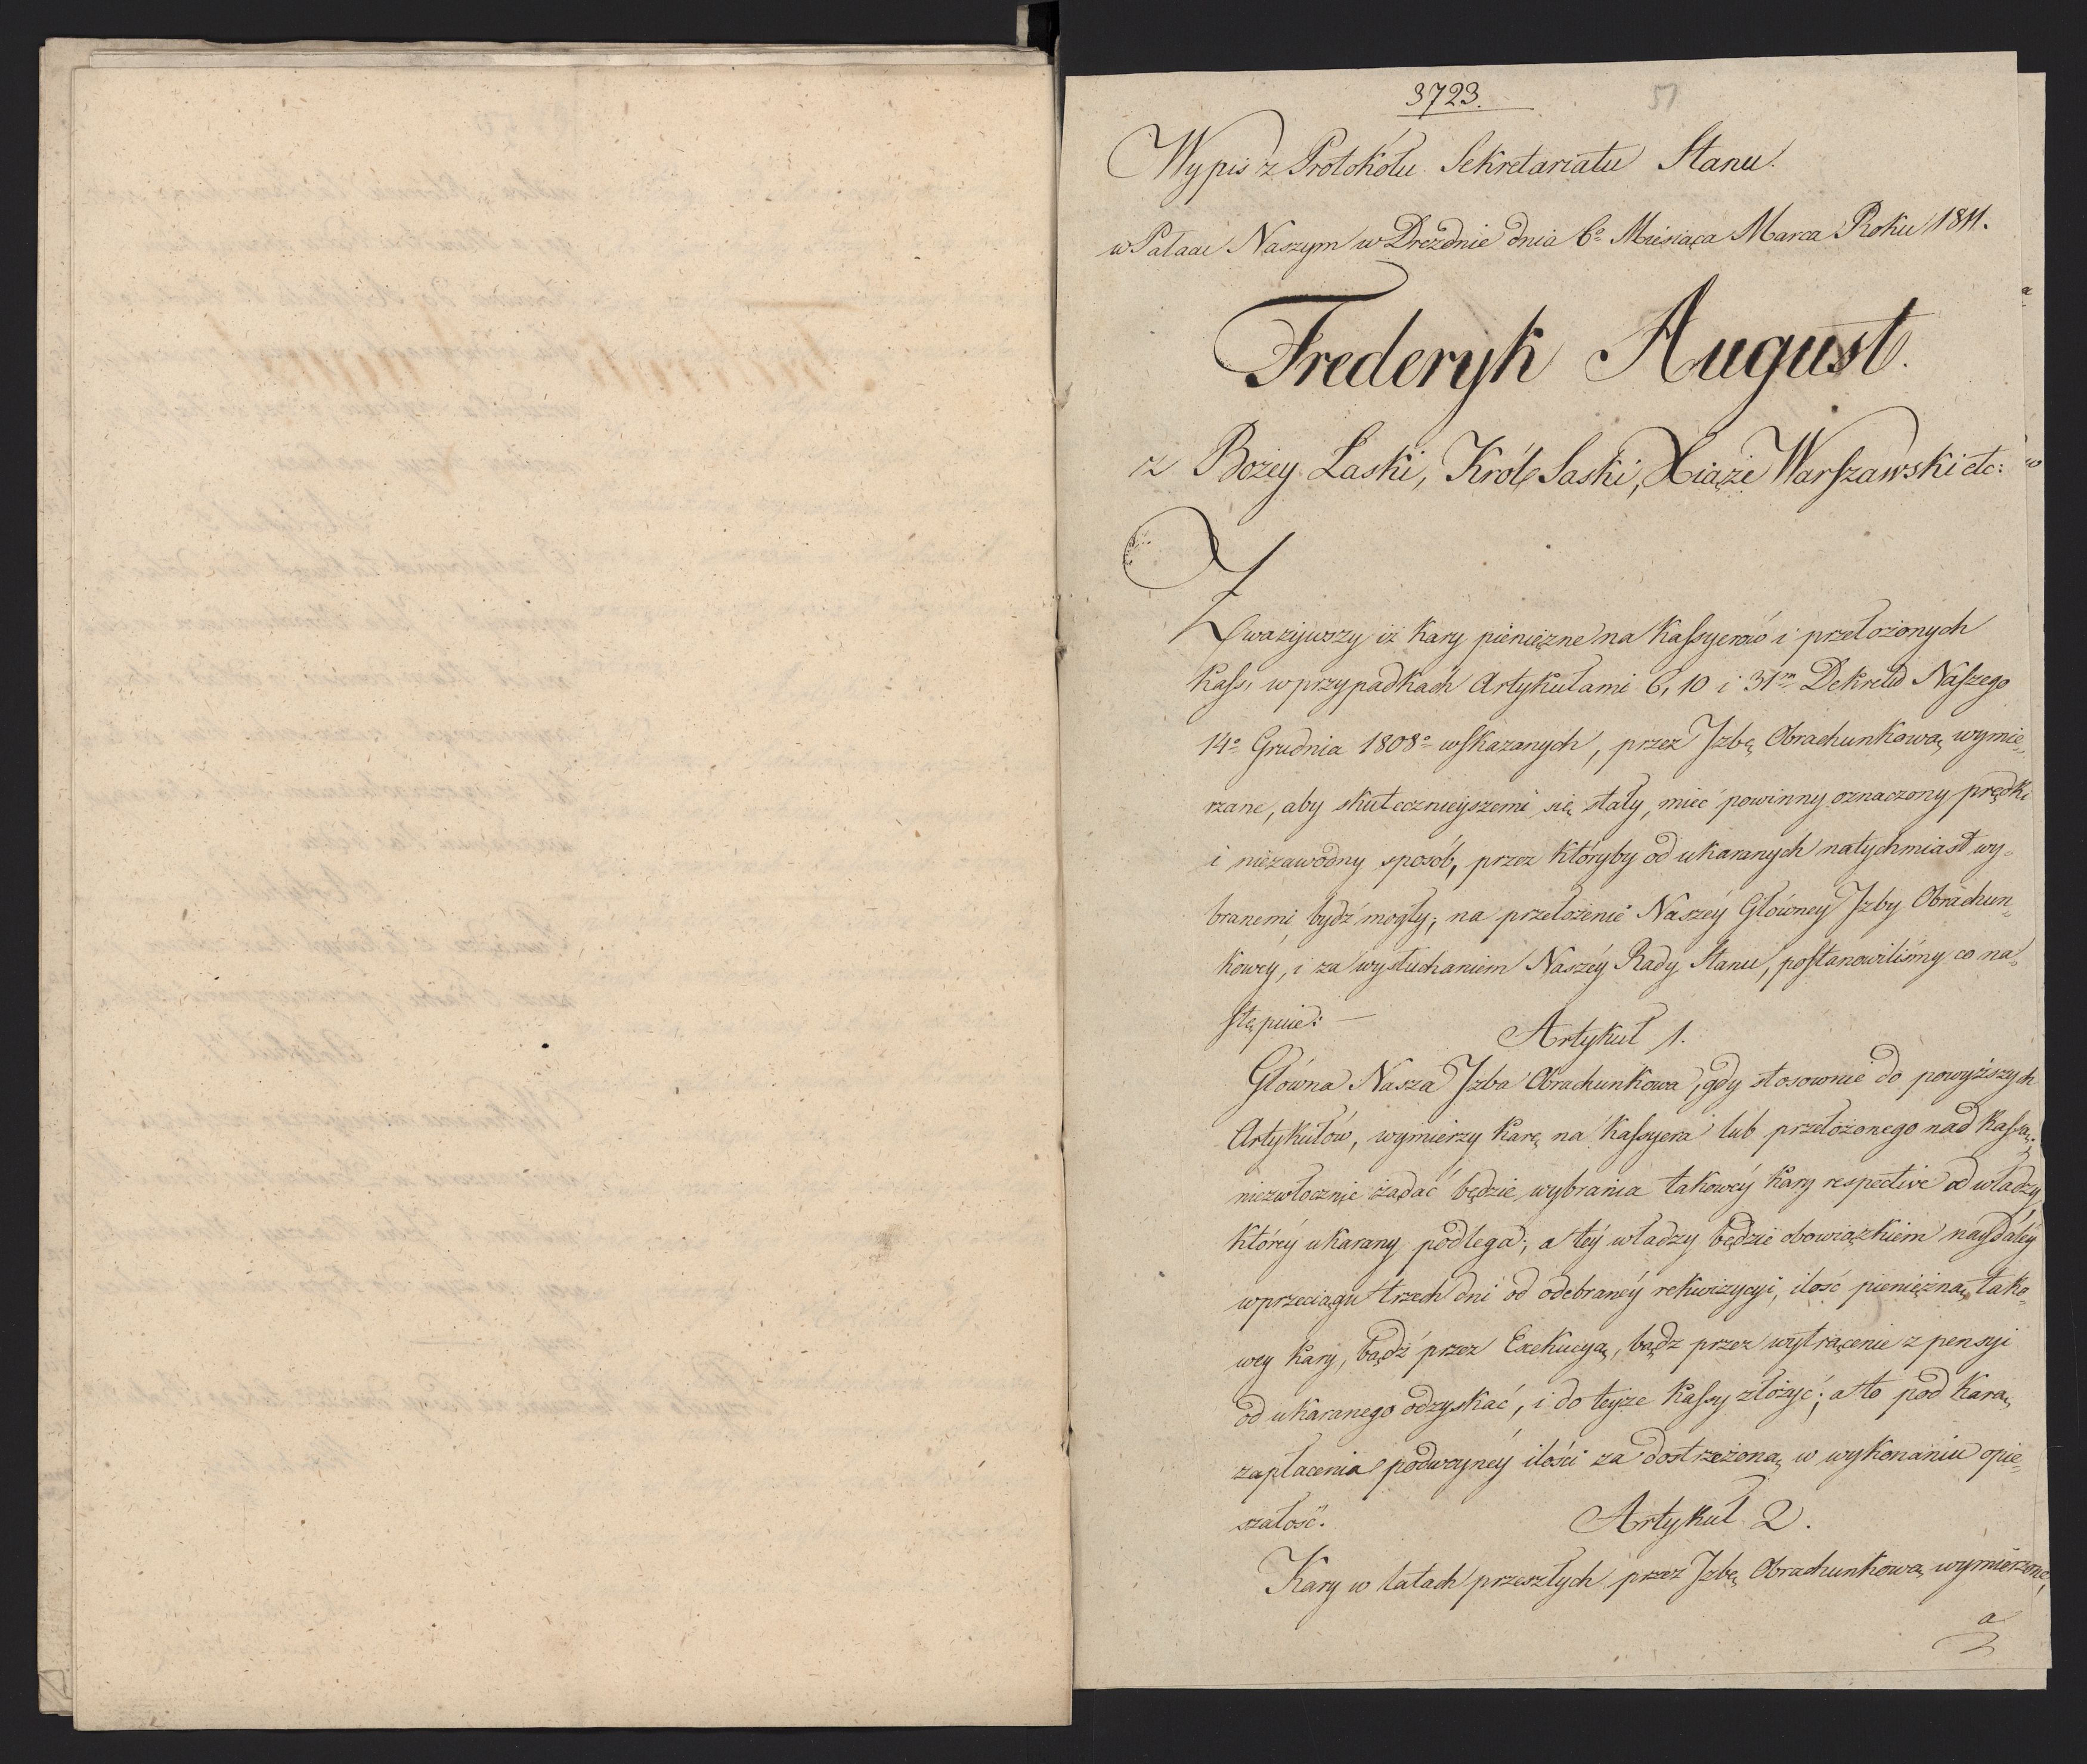 3723.
51
Wypis z Protokółu Sekretariatu Stanu.
w Pałacu Naszym w Dreznie dnia 6º Miesiąca Marca Roku 1811.
Frederyk August.
z Bożey Łaski, Król Saski, Xiąże Warszawski etc:
Zważywszy iż kary pieniężne na Kassyerów i przełożonych
Kass, w przypadkach Artykułami 6, 10 i 31m Dekretu Naszego
14º Grudnia 1808º wskazanych, przez Jzbę Obrachunkową wymie„
rzane, aby skutecznieyszemi się stały, mieć powinny oznaczony prędki
i niezawodny sposób, przez któryby od ukaranych natychmiast wy„
branemi bydź mogły; na przełożenie Naszéy Główney Jzby Obrachun„
kowéy, i za wysłuchaniem Naszéy Rady Stanu, postanowiliśmy co na„
stępuie: —
Artykuł 1.
Główna Nasza Jzba Obrachunkowa, gdy stosownie do powyższych
Artykułów, wymierzy karę na Kassyera lub przełożonego nad Kassą;
niezwłocznie żądać będzie wybrania takowéy kary respective od władzy
któréy ukarany podlega; a téy władzy będzie obowiązkiem naydáléy
w przeciągu trzech dni od odebranéy rekwizycyi, ilość pieniężną tako„
wey kary, bądź przez Exekucyą, bądz przez wytrącenie z pensyi
od ukaranego odzyskać, i do teyże kassy złożyć; a to pod karą
zapłacenia podwoynéy ilości za dostrzeżoną w wykonaniu opie„
szałość.
Artykuł 2.
Kary w latach przeszłych przez Jzbę Obrachunkową wymierzone,
a